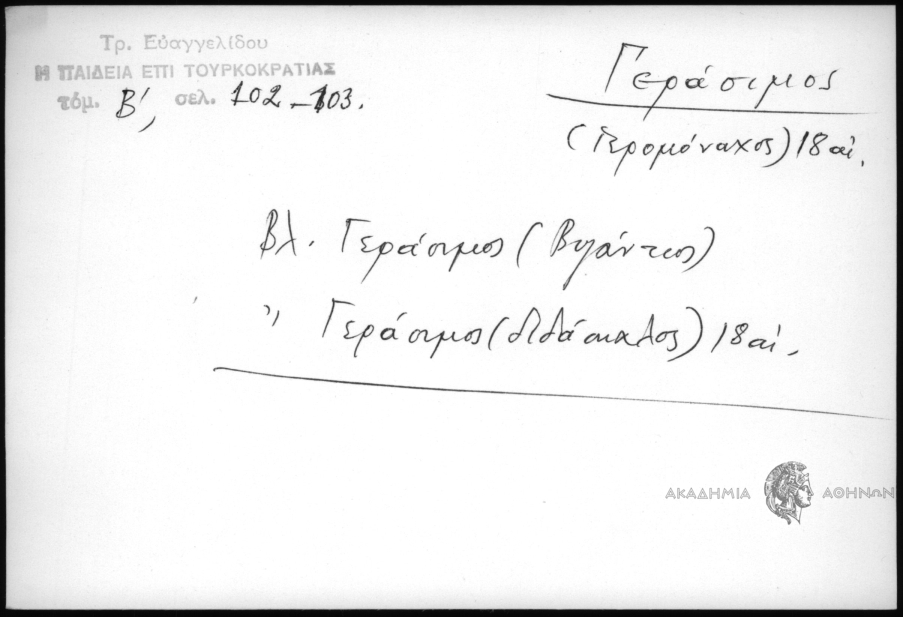 Τρ. Εὐαγγελίδου
Η ΠΑΙΔΕΙΑ ΕΠΙ ΤΟΥΡΚΟΚΡΑΤΙΑΣ
τόμ. Β', σελ. 102-103.
Γεράσιμος
(Ἱερομόναχος) 18 αἰ.
Βλ. Γεράσιμος (Βυζάντιος)
" Γεράσιμος (διδάσκαλος) 18 αἰ.
ΑΚΑΔΗΜΙΑ ΑΘΗΝΩΝ